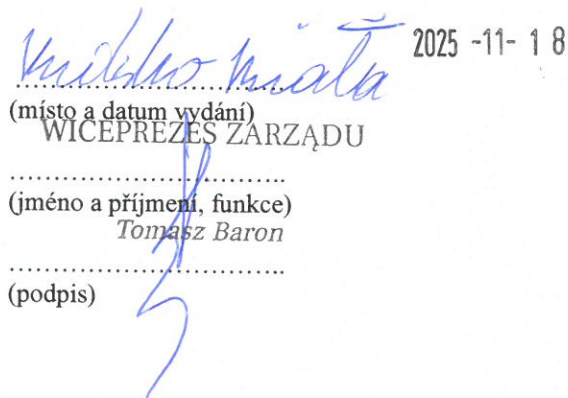 Bielsko Biała 2025 -11- 18
..................................
(místo a datum vydání)
WICEPREZES ZARZĄDU
..................................
(jméno a příjmení, funkce)
Tomasz Baron
..................................
(podpis)